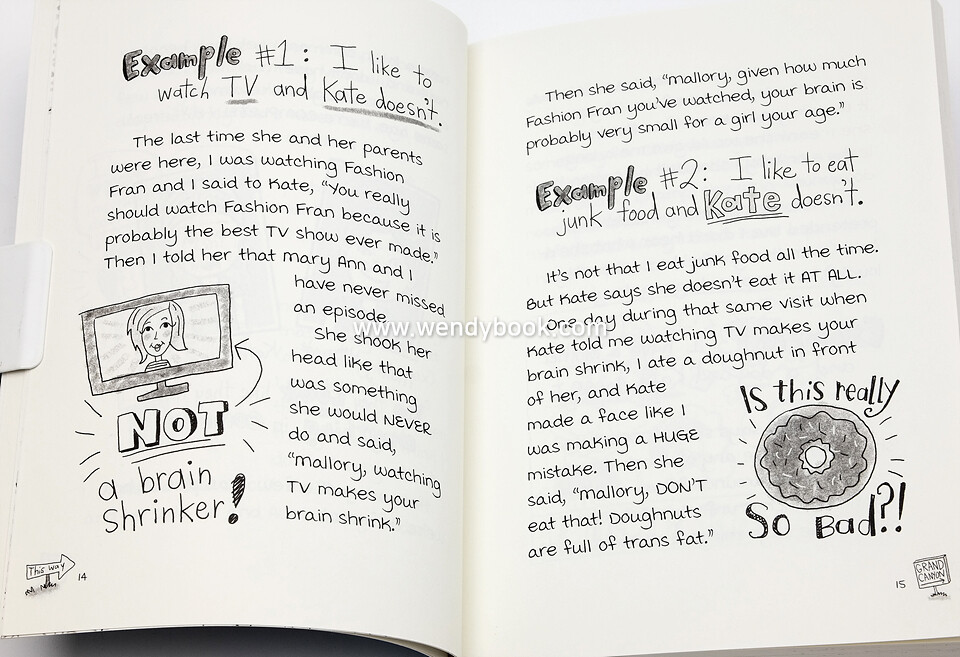 Example #1: I like to
watch TV and Kate doesn't.
The last time she and her parents
were here, I was watching Fashion
Fran and I said to Kate, "You really
should watch Fashion Fran because it is
probably the best TV show ever made."
Then I told her that mary Ann and I
have never missed
an episode.
She shook her
head like that
was something
she would NEVER
do and said,
"mallory, watching
TV makes your
brain shrink."
NOT
a brain
shrinker!
This way
14
Then she said, "mallory, given how much
Fashion Fran you've watched, your brain is
probably very small for a girl your age."
Example #2: I like to eat
junk food and Kate doesn't.
It's not that I eat junk food all the time.
But Kate says she doesn't eat it AT ALL.
One day during that same visit when
Kate told me watching TV makes your
brain shrink, I ate a doughnut in front
of her, and Kate
made a face like I
was making a HUGE
mistake. Then she
said, "mallory, DON'T
eat that! Doughnuts
are full of trans fat."
Is this really
So Bad?!
15
GRAND
CANYON
www.wendybook.com